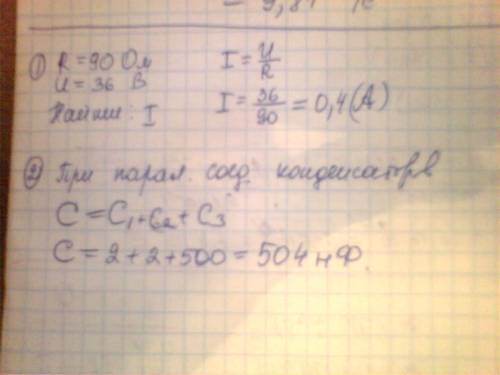 ① R = 90 Ом I = U/R
U = 36 В
Найти: I I = 36/90 = 0,4 (А)
② При парал. соед. конденсаторв
C = C₁ + C₂ + C₃
C = 2 + 2 + 500 = 504 нФ